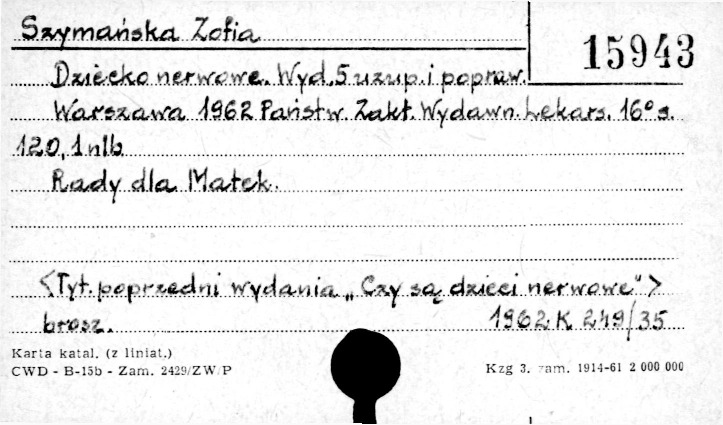 Szymańska Zofia
15943
Dziecko nerwowe. Wyd. 5 uzup. i popraw.
Warszawa 1962 Państw. Zakł. Wydawn. Lekars. 16° s.
120, 1 nlb
Rady dla Matek.
<Tyt. poprzedni wydania „Czy są dzieci nerwowe">
brosz. 1962 K 249/35
Karta katal. (z liniat.)
CWD - B-15b - Zam. 2429/ZW/P
Kzg 3. zam. 1914-61 2 000 000